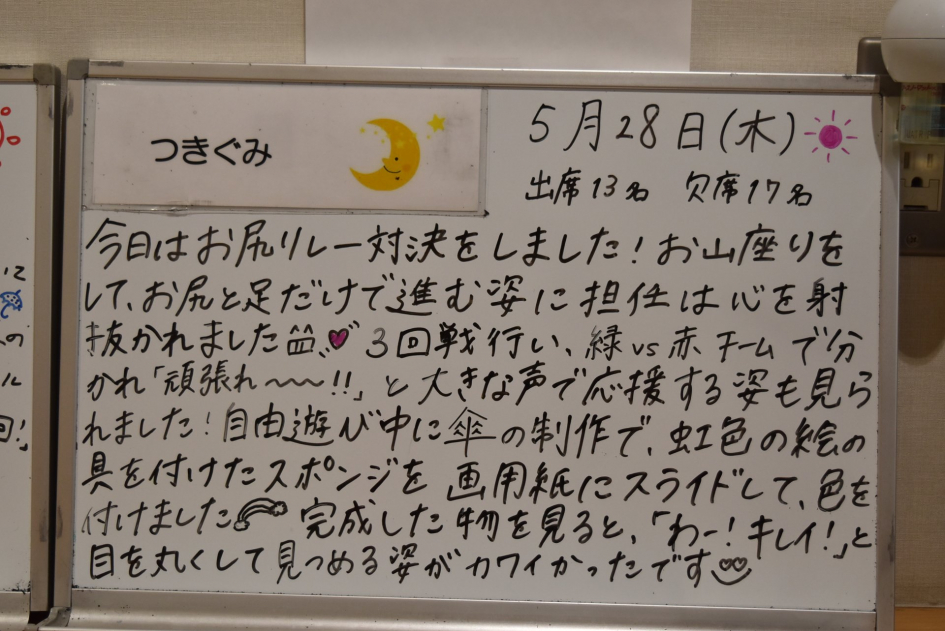 つきぐみ
5月28日(木)
出席13名 欠席17名
今日はお尻リレー対決をしました!お山座りを
して、お尻と足だけで進む姿に担任は心を射
抜かれました 3回戦行い、緑vs赤チームで分
かれ「頑張れ〜〜〜!!」と大きな声で応援する姿も見ら
れました!自由遊び中に傘の制作で、虹色の絵の
具を付けたスポンジを画用紙にスライドして、色を
付けました 完成した物を見ると、「わー!キレイ!」と
目を丸くして見つめる姿がカワイかったです
いて
の
ル
回!」